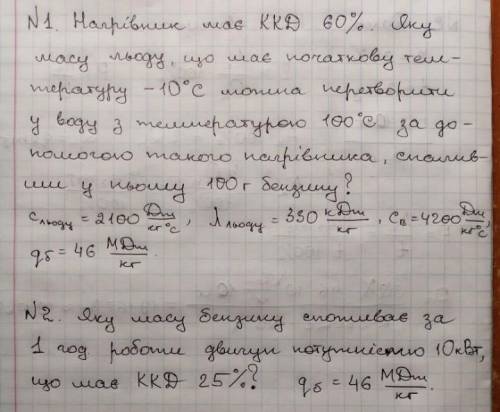 N1. Нагрівник має ККД 60%. Яку
масу льоду, що має початкову тем-
пературу -10°С можна перетворити
у воду з температурою 100°С за до-
помогою такого нагрівника, спалив-
ши у ньому 100 г бензину?
c льоду = 2100 Дж/кг°С, λ льоду = 330 кДж/кг, cв = 4200 Дж/кг°С,
qб = 46 МДж/кг.
N2. Яку масу бензину споживає за
1 год роботи двигун потужністю 10 кВт,
що має ККД 25%? qб = 46 МДж/кг.